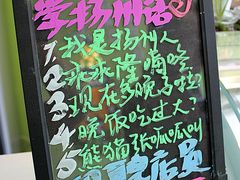 学扬州话
1.我是扬州人
2.乖乖隆嘀咚
3.现在多晚马啦
4.晚饭吃过大?
5.熊猫张呱呱叫
店员